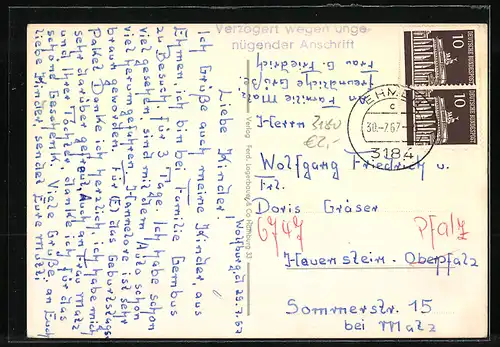 Wolfsburg, d 29.7.67
Liebe Kinder!
Ich Grüße auch meine Kinder, aus
Ehmen, ich bin bei Familie Gembus
zu Besuch, für 3 Tage. Ich habe schon
viel gesehen, sind mit dem Auto schon
viel herum gefahren, Hannelore ist sehr
braun geworden. Für (E) das Geburtstags
Paket Danke ich herzlich, ich habe mich
sehr darüber gefreut. Auch an Frau Matz
und Ihrer Tochter, danke ich für das
schöne Geschenk. Viele Grüße, an Euch
liebe Kinder, sendet Eure Mutti
Verlag Ferd. Lagerbauer & Co Hamburg 33
Verzögert wegen unge-
nügender Anschrift
An Familie Matz
freundliche Grüße
Frau G. Friedrich
10
DEUTSCHE BUNDESPOST
10
DEUTSCHE BUNDESPOST
EHMEN
c
30.-7.67
3184
Herrn
3180
€2,-
Wolfgang Friedrich u.
Frl.
Doris Gräser
6747
Pfalz
Hauenstein - Oberpfalz
Sommerstr. 15
bei Matz